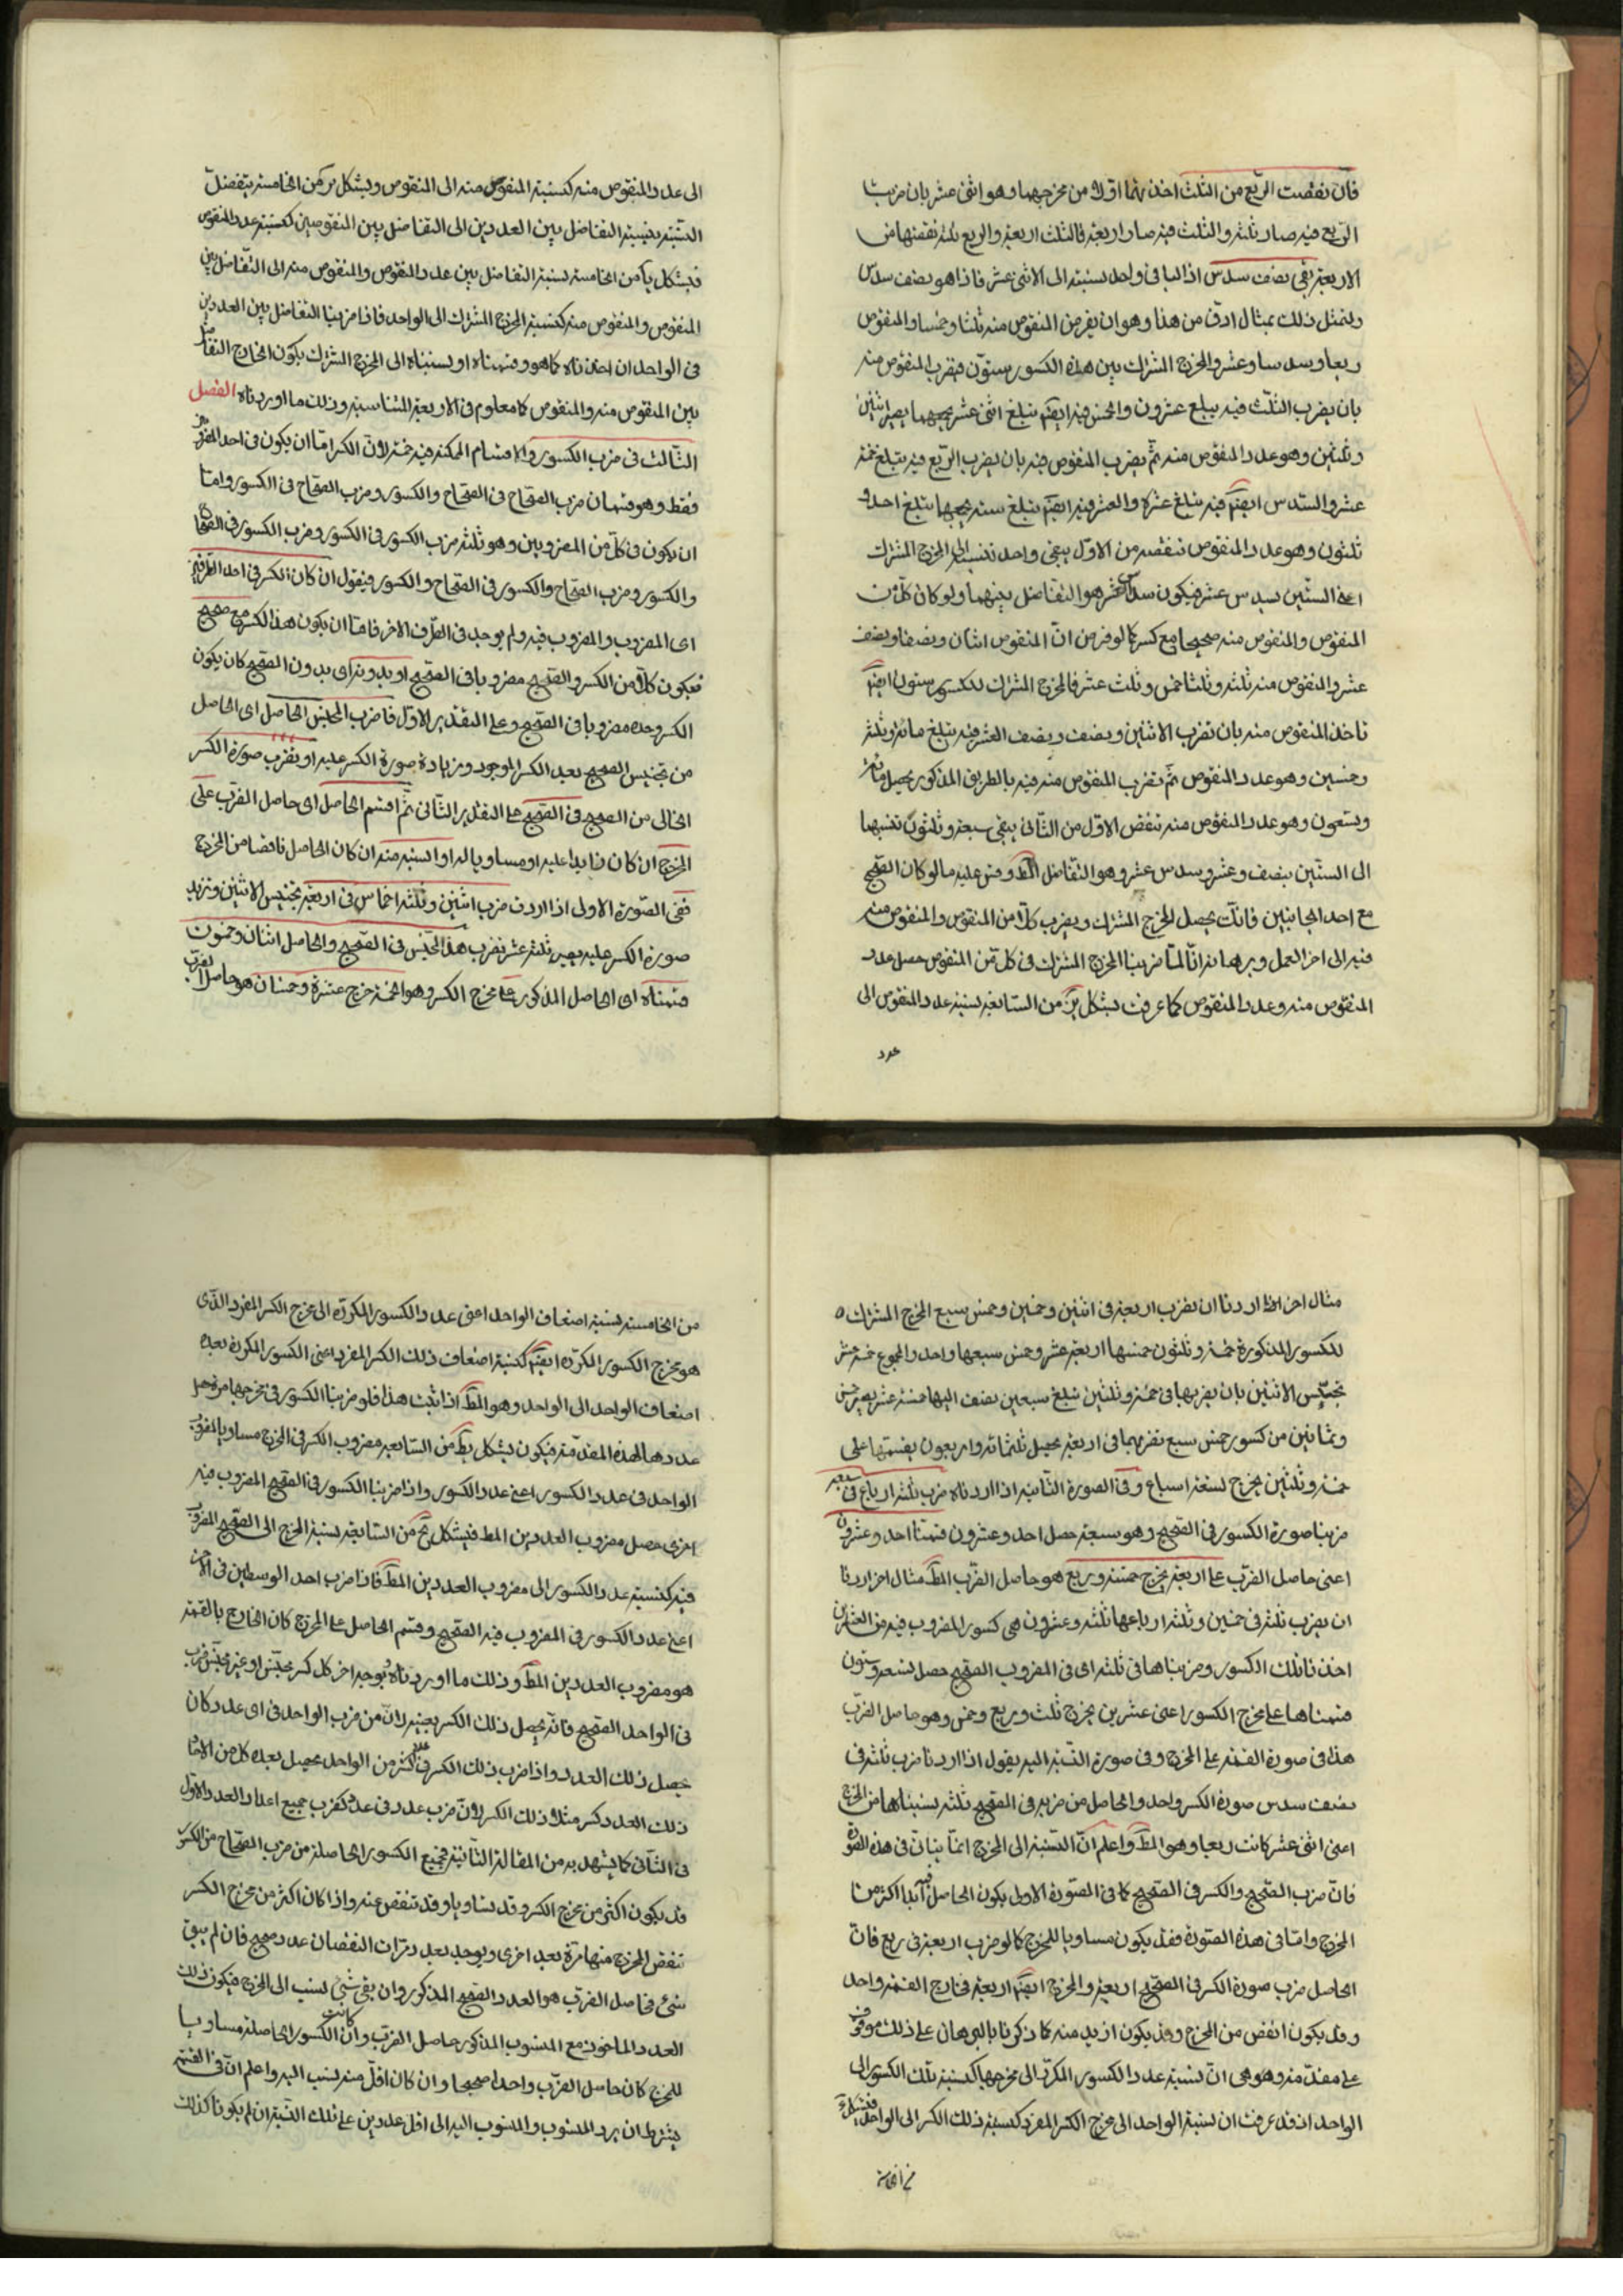 فان نقصت الربع من الثلث اخذتهما اولا من مخرجهما وهو اثنى عشر بان ضربت
الربع فيه صار ثلثه والثلث فيه صار اربعة فالثلث اربعة والربع ثلثه نقصتها من
الاربعة بقى نصف سدس اذ الباقى واحد نسبته الى الاثنى عشر فاذا هو نصف سدس
ولنمثل ذلك بمثال ادق من هذا وهو ان نفرض المنقوص منه ثلثا وخمسا والمنقوص
ربعا وسدسا وعشر والمخرج المشترك بين هذه الكسور ستون فنضرب المنقوص منه
بان نضرب الثلث فيه يبلغ عشرون والخمس فيه ايضا يبلغ اثنى عشر نجمعهما يصير اثنين
وثلثين وهو عدد المنقوص منه ثم نضرب المنقوص فيه بان نضرب الربع فيه يبلغ خمسة
عشر والسدس ايضا فيه يبلغ عشرة والعشر فيه ايضا يبلغ ستة نجمعها يبلغ احد و
ثلثون وهو عدد المنقوص ننقصه من الاول يبقى واحد ننسبه الى المخرج المشترك
اعنى الستين سدس عشر فيكون سدس عشر هو التفاضل بينهما ولو كان كل من
المنقوص والمنقوص منه صحيحا مع كسر كما لو فرض ان المنقوص اثنان ونصفا ونصف
عشر والمنقوص منه ثلثه وثلثا خمس وثلث عشر فالمخرج المشترك للكسور ستون ايضا
ناخذ المنقوص منه بان نضرب الاثنين ونصف ونصف العشر فيه يبلغ مائة وثلثة
وخمسين وهو عدد المنقوص ثم نضرب المنقوص منه فيه بالطريق المذكور يحصل مائة
وتسعون وهو عدد المنقوص منه ننقص الاول من الثانى يبقى سبعة وثلثون ننسبها
الى الستين بنصف وعشر وسدس عشر وهو التفاضل المط وقس عليه ما لو كان الصحيح
مع احد الجانبين فانك تحصل المخرج المشترك وتضرب كلا من المنقوص والمنقوص منه
فيه الى اخر العمل وبرهانه انا لما ضربنا المخرج المشترك فى كل من المنقوص حصل عدد
المنقوص منه وعدد المنقوص كما عرفت بشكل من السابعة نسبة عدد المنقوص الى
عدد
الى عدد المنقوص منه كنسبة المنقوص منه الى المنقوص وبشكل من الخامسة بتفضيل
النسبة نسبة التفاضل بين العددين الى التفاضل بين المنقوصين كنسبة عدد المنقوص
فبشكل يا من الخامسة نسبة التفاضل بين عدد المنقوص والمنقوص منه الى التفاضل بين
المنقوص والمنقوص منه كنسبة المخرج المشترك الى الواحد فاذا ضربنا التفاضل بين العددين
فى الواحد ان اخذناه كما هو وقسمناه او نسبناه الى المخرج المشترك يكون الخارج التفاضل
بين المنقوص منه والمنقوص كما معلوم فى الاربعة المتناسبة وذلك ما اوردناه الفصل
الثالث فى ضرب الكسور والاقسام الممكنة فيه خمسة لان الكسر اما ان يكون فى احد المضروبين
فقط وهو قسمان ضرب الصحاح فى الصحاح والكسور وضرب الصحاح فى الكسور واما
ان يكون فى كل من المضروبين وهو ثلثة ضرب الكسور فى الكسور وضرب الكسور فى الصحاح
والكسور وضرب الصحاح والكسور فى الصحاح والكسور فنقول ان كان الكسر فى احد الطرفين
اى المضروب والمضروب فيه ولم يوجد فى الطرف الاخر فاما ان يكون هذا الكسر مع صحيح
فيكون كلا من الكسر والصحيح مضروبا فى الصحيح او بدونه اى بدون الصحيح كان يكون
الكسر وحده مضروبا فى الصحيح وعلى التقدير الاول فاضرب المجنس الحاصل اى الحاصل
من تجنيس الصحيح بعد الكسر الموجود وزيادة صورة الكسر عليه او نضرب صورة الكسر
الخالى من الصحيح فى الصحيح على التقدير الثانى ثم اقسم الحاصل اى حاصل الضرب على
المخرج ان كان زايدا عليه او مساويا له او انسبه منه ان كان الحاصل ناقصا من المخرج
ففى الصورة الاولى اذا اردت ضرب اثنين وثلثه اخماس فى اربعة تجنيس الاثنين ونزيد
صورة الكسر عليه يصير ثلثه عشر نضرب هذا المجنس فى الصحيح والحاصل اثنان وخمسون
قسمناه اى الحاصل المذكور على مخرج الكسر وهو الخمسة خرج عشرة وخمسان هو حاصل الضرب
مثال اخر اذا اردنا ان نضرب اربعة فى اثنين وخمسين وخمس سبع المخرج المشترك
للكسور المذكورة خمسة وثلثون خمسها اربعة عشر وخمس سبعها واحد والمجموع خمسة عشر
تجنيس الاثنين بان نضربها فى خمسة وثلثين يبلغ سبعين نضف اليها خمسة عشر يصير خمس
وثمانين من كسور خمس سبع نضربها فى اربعة يحصل ثلثمائه واربعون نقسمها على
خمسة وثلثين يخرج تسعة اسباع وفى الصورة الثانية اذا اردناه ضرب ثلثه ارباع فى سبعة
ضربنا صورة الكسور فى الصحيح وهو سبعة حصل احد وعشرون قسمنا احد وعشرون
اعنى حاصل الضرب على اربعة يخرج خمسة وربع هو حاصل الضرب المط مثال اخر اردنا
ان نضرب ثلثه فى خمسين وثلثه ارباعها ثلثه وعشرون هى كسور المضروب فيه من العشرين
اخذنا تلك الكسور وضربناها فى ثلثه اى فى المضروب الصحيح حصل تسعه وستون
قسمناها على مخرج الكسور اعنى عشرين يخرج ثلث وربع وخمس وهو حاصل الضرب
هذا فى صورة القسمة على المخرج وفى صورة النسبة اليه نقول اذا اردنا ضرب ثلثه فى
نصف سدس صورة الكسر واحد والحاصل من ضربه فى الصحيح ثلثه نسبناها من المخرج
اعنى اثنى عشر كانت ربعا وهو المط واعلم ان النسبة الى المخرج انما يتاتى فى هذه الصورة
فان ضرب الصحيح والكسر فى الصحيح كما فى الصورة الاولى يكون الحاصل فيه ابدا اكثر من
المخرج واما فى هذه الصورة فقد يكون مساويا للمخرج كما لو ضرب اربعة فى ربع فان
الحاصل ضرب صورة الكسر فى الصحيح اربعة والمخرج ايضا اربعة فخارج القسمة واحد
وقد يكون انقص من المخرج وقد يكون ازيد منه كما ذكرنا بالبرهان على ذلك موقوف
على مقدمة وهو هى ان نسبة عدد الكسور المكرر الى مخرجها كنسبة تلك الكسور الى
الواحد اذ قد عرفت ان نسبة الواحد الى مخرج الكسر المفرد كنسبة ذلك الكسر الى الواحد فبشكل
من الخامسة
من الخامسة نسبة اضعاف الواحد اعنى عدد الكسور المكررة الى مخرج الكسر المفرد الذى
هو مخرج الكسور المكررة ايضا كنسبة اضعاف ذلك الكسر المفرد اعنى الكسور المكررة بعدة
اضعاف الواحد الى الواحد وهو المط اذا ثبت هذا فلو ضربنا الكسور فى مخرجها حصل
عددها لهذه المقدمة فيكون بشكل يط من السابعة مضروب الكسر فى المخرج مساويا لمضروب
الواحد فى عدد الكسور اعنى عدد الكسور واذا ضربنا الكسور فى الصحيح المضروب فيه
اخرى حصل مضروب العددين المط فبشكل من السابعة نسبة المخرج الى الصحيح المضروب
فيه كنسبة عدد الكسور الى مضروب العددين المط فاذا ضرب احد الوسطين فى الاخر
اعنى عدد الكسور فى المضروب فيه الصحيح وقسم الحاصل على المخرج كان الخارج بالقسمة
هو مضروب العددين المط وذلك ما اوردناه وبوجه اخر كل كسر مجنس او غير مجنس ضرب
فى الواحد الصحيح فانه يحصل ذلك الكسر بعينه لان من ضرب الواحد فى اى عدد كان
حصل ذلك العدد واذا ضرب ذلك الكسر فى عدد اكثر من الواحد يحصل بعدة كل من الاحاد
ذلك العدد كسر مثل ذلك الكسر لان ضرب عدد فى عدد كضرب جميع احاد العدد الاول
فى الثانى كما يشهد به من المقالة الثانية فجميع الكسور الحاصلة من ضرب الصحاح من الكسور
قد يكون اكثر من مخرج الكسر وقد تساويا وقد تنقص عنه واذا كان اكثر من مخرج الكسر
ننقص المخرج منها مرة بعد اخرى ويوجد بعدد مرات النقصان عدد صحيح فان لم يبق
شئ فحاصل الضرب هو العدد الصحيح المذكور وان بقى شئ نسب الى المخرج فيكون ذلك
العدد الماخوذ مع المنسوب المذكور حاصل الضرب وان كانت الكسور الحاصلة مساويا
للمخرج كان حاصل الضرب واحدا صحيحا وان كان اقل منه نسب اليه واعلم ان فى القسمة
يشترط ان يرد المنسوب والمنسوب اليه الى اقل عددين على تلك النسبة ان لم يكونا كذلك